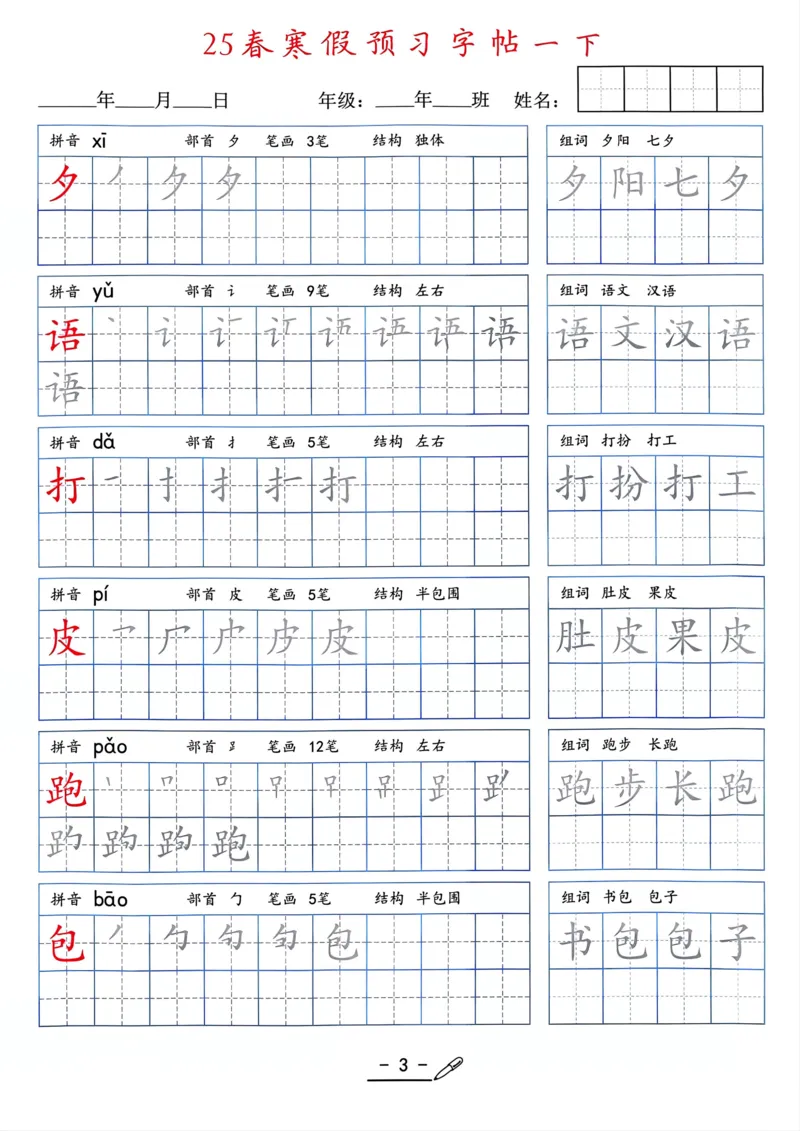 25春寒假预习字帖一下
____年___月___日 年级：___年___班 姓名：
拼音 xī 部首 夕 笔画 3笔 结构 独体 组词 夕阳 七夕
夕 丿 ク 夕 夕阳七夕
拼音 yǔ 部首 讠 笔画 9笔 结构 左右 组词 语文 汉语
语 语 语文汉语
语
拼音 dǎ 部首 扌 笔画 5笔 结构 左右 组词 打扮 打工
打 一 扌 打 打扮打工
拼音 pí 部首 皮 笔画 5笔 结构 半包围 组词 肚皮 果皮
皮 皮 肚皮果皮
拼音 pǎo 部首 𧾷 笔画 12笔 结构 左右 组词 跑步 长跑
跑 跑步长跑
跑
拼音 bāo 部首 勹 笔画 5笔 结构 半包围 组词 书包 包子
包 丿 勹 包 书包包子
- 3 -